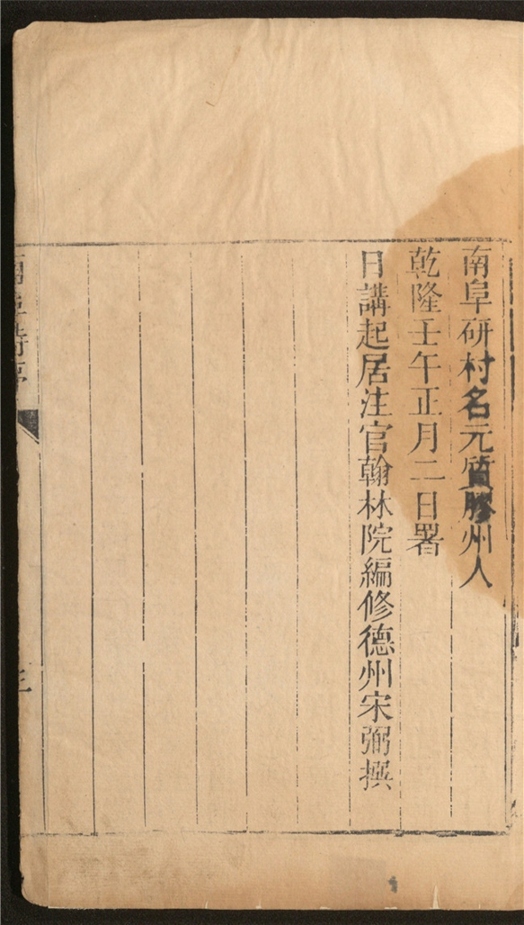 南阜研村名元質膠州人
乾隆壬午正月二日署
日講起居注官翰林院編修德州宋弼撰